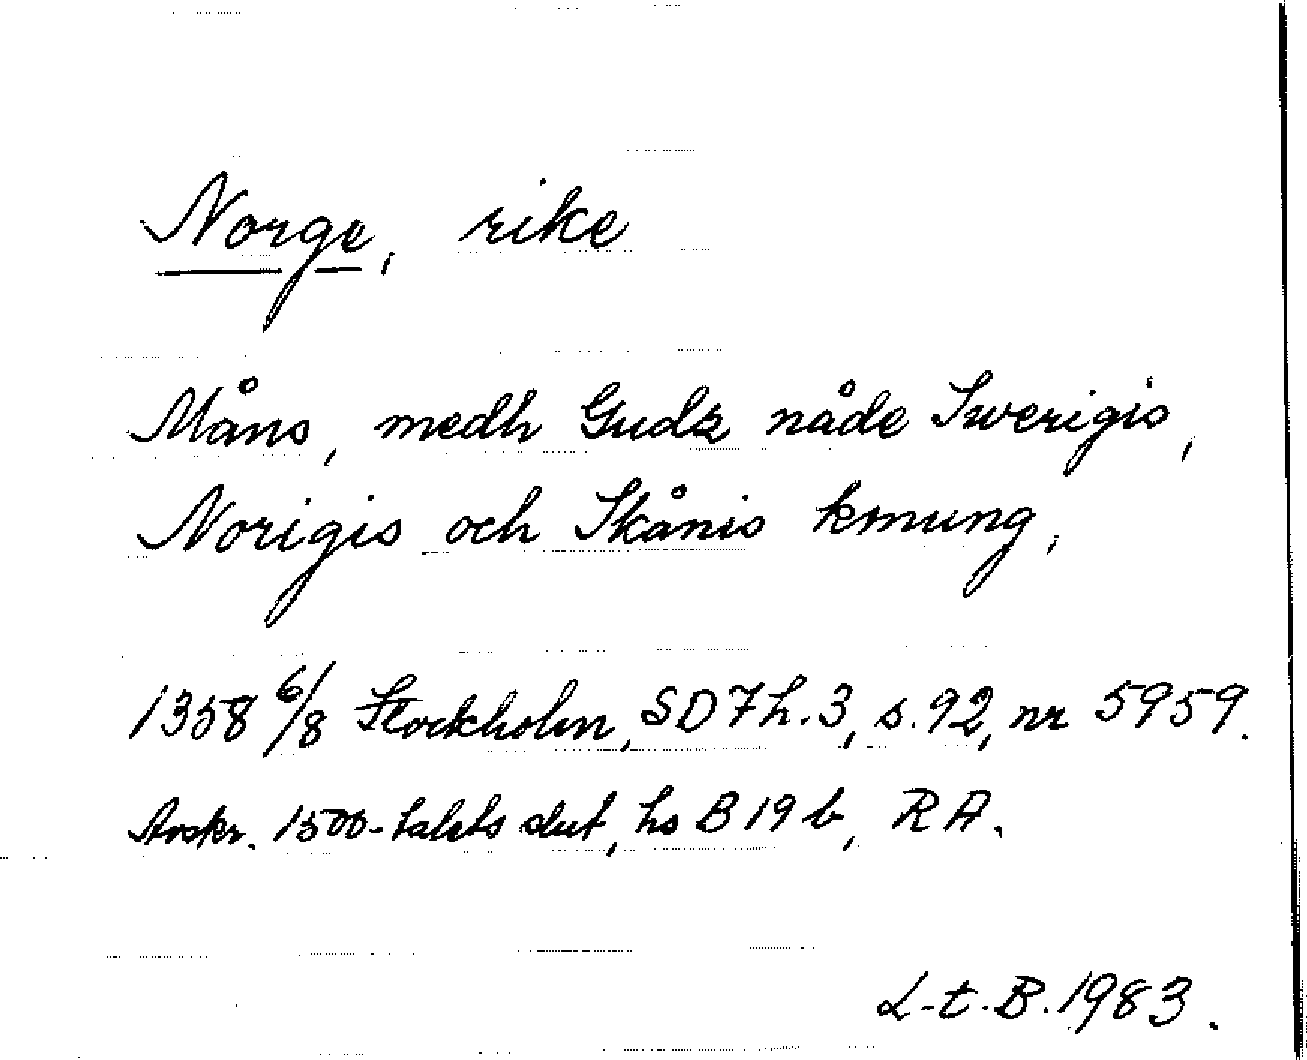 Norge, rike
Måns, medh Gudz nåde Swerigis,
Norigis och Skånis konung,
1358 6/8 Stockholm, SD 7 h. 3, s. 92, nr 5959.
Avskr. 1500-talets slut, hs B 19 b, RA.
L-t. B. 1983.